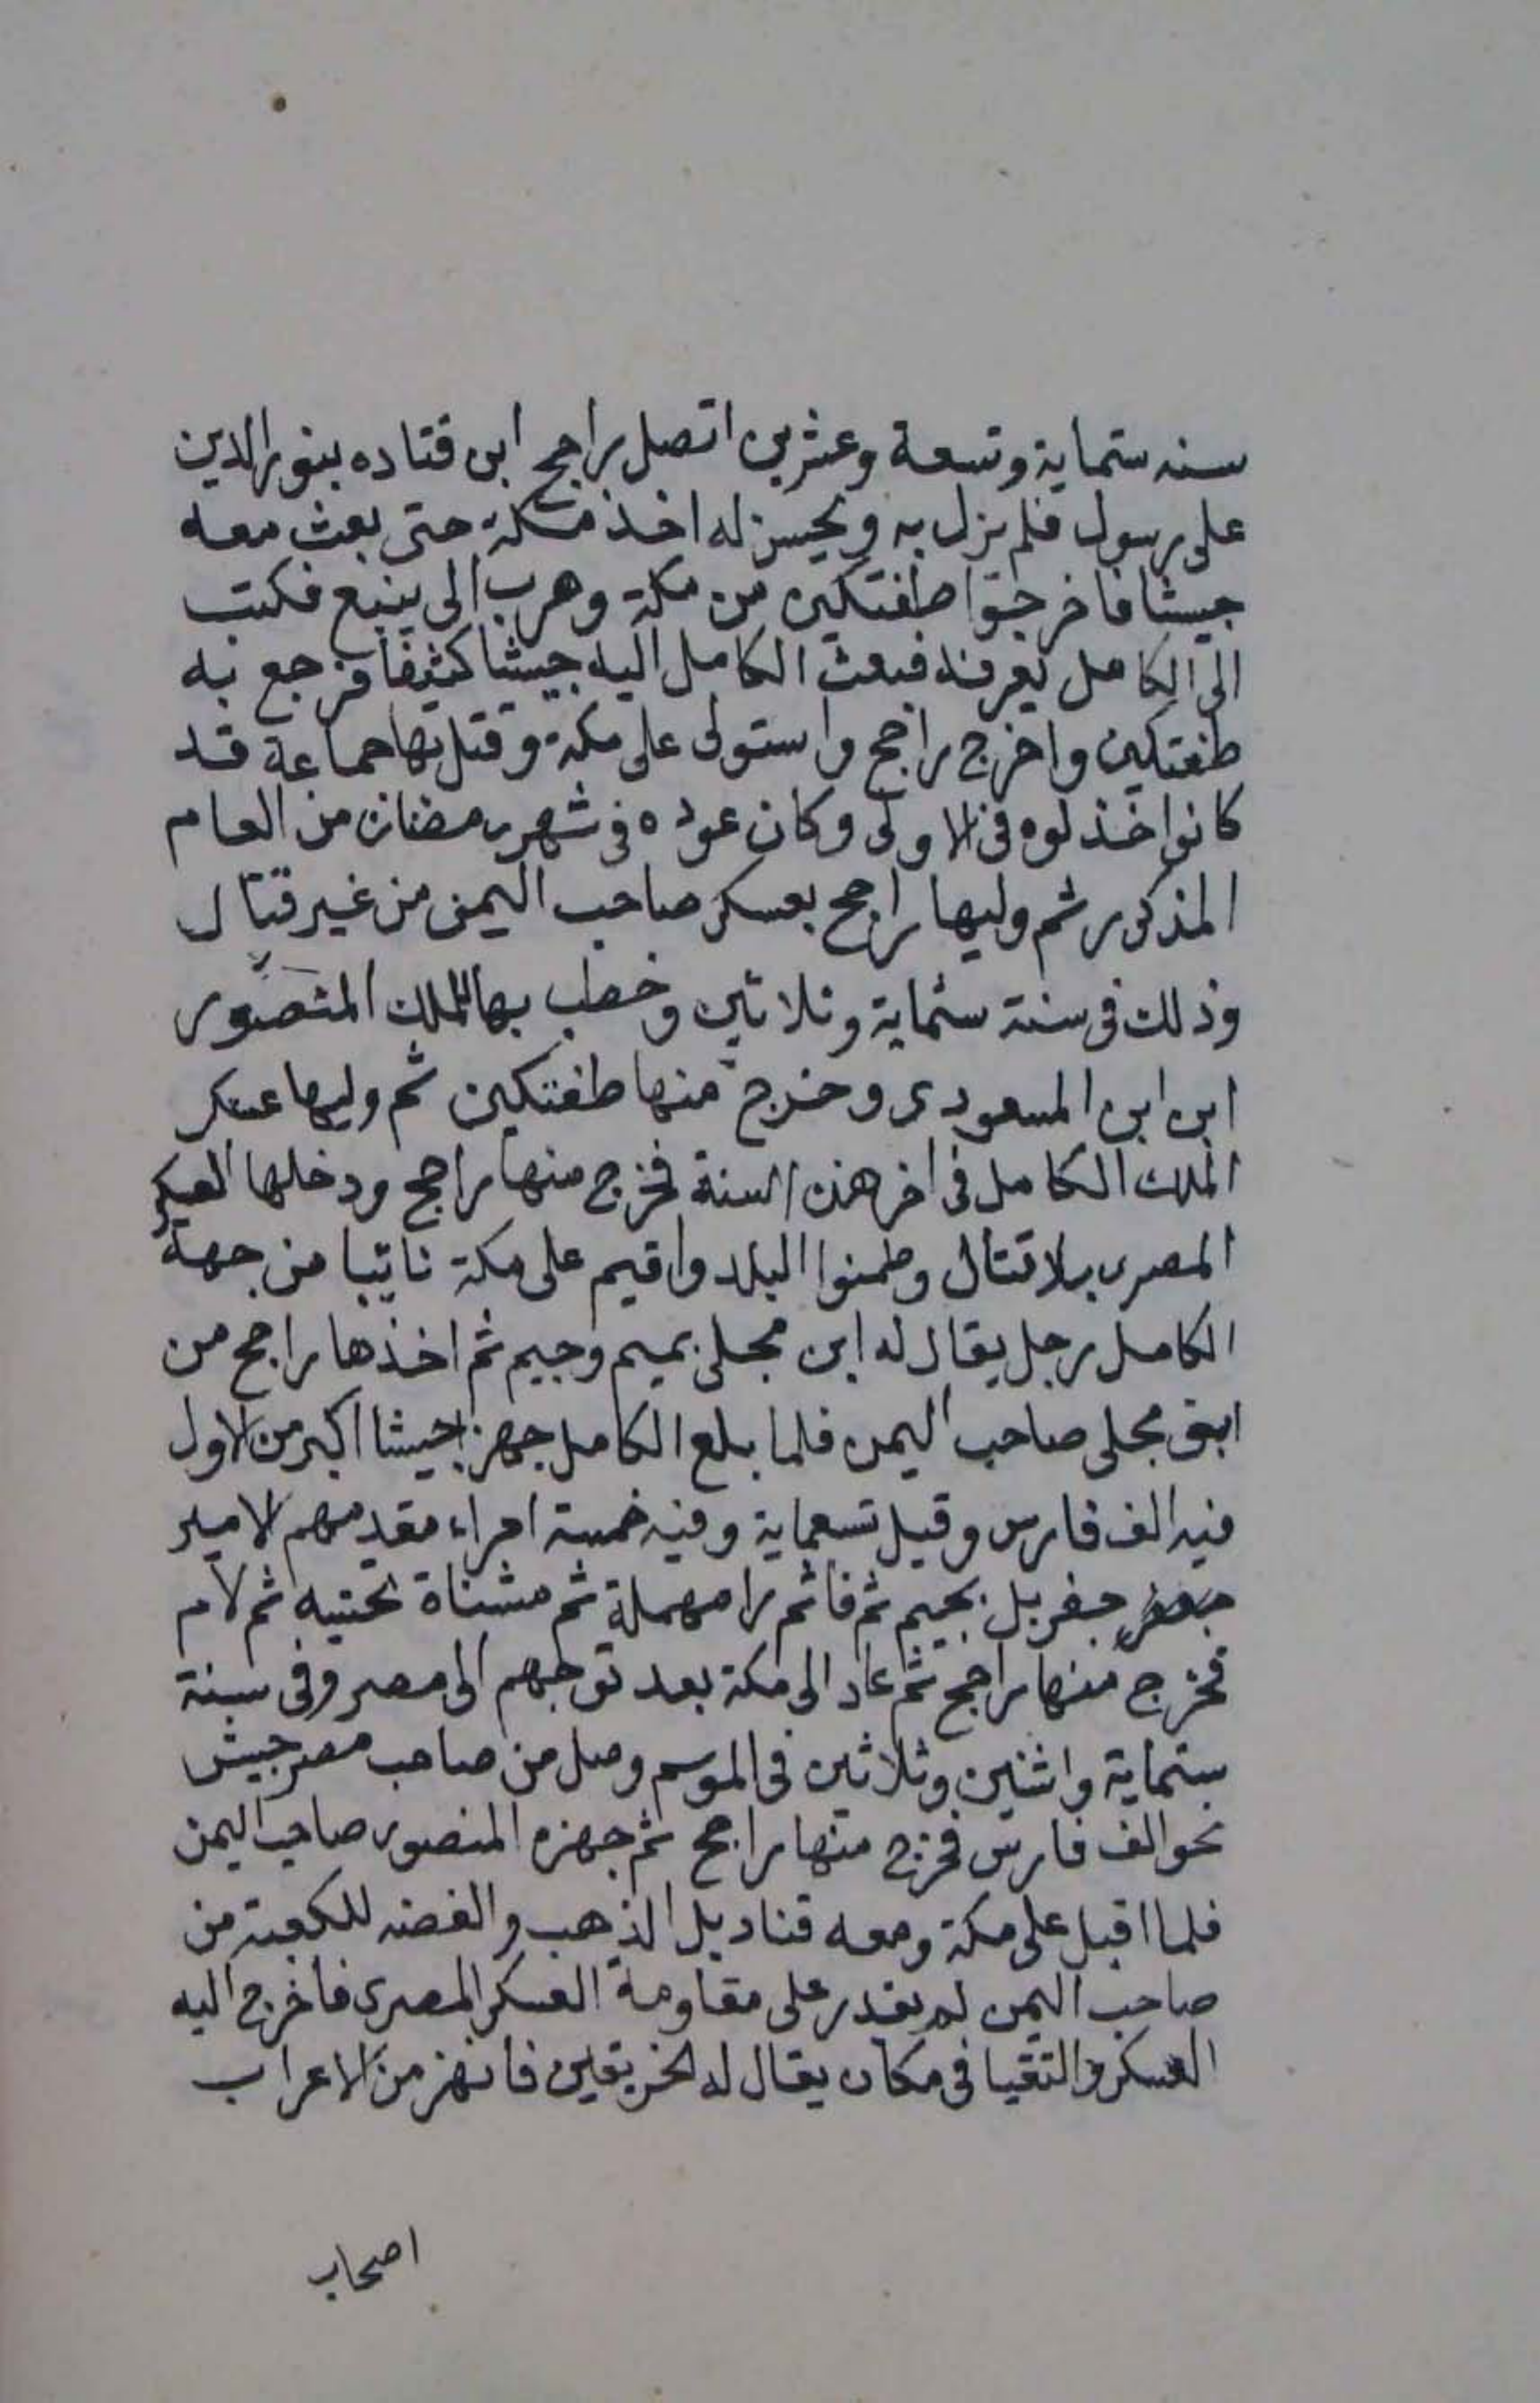 سنه ستماية وتسعة وعشرين اتصل راجح ابن قتاده بنور الدين
على رسول فلم يزل به ويحسن له اخذ مكة حتى بعث معه
جيشا فاخرجوا طغتكين من مكة وهرب الى ينبع فكتب
الى الكامل يعرفه فبعث الكامل اليه جيشا كثيفا فرجع به
طغتكين واخرج راجح واستولى على مكة وقتل بها جماعة قد
كانوا خذلوه فى الاولى وكان عوده فى شهر رمضان من العام
المذكور ثم وليها راجح بعسكر صاحب اليمن من غير قتال
وذلك فى سنة ستماية وثلاثين وخطب بها للملك المنصور
ابن ابن المسعودى وخرج منها طغتكين ثم وليها عسكر
الملك الكامل فى اخر هذه السنة فخرج منها راجح ودخلها العسكر
المصرى بلا قتال وطمنوا البلد واقيم على مكة نائبا من جهة
الكامل رجل يقال له ابن مجلى بميم وجيم ثم اخذها راجح من
ابن مجلى صاحب اليمن فلما بلغ الكامل جهز جيشا اكبر من الاول
فيه الف فارس وقيل تسعماية وفيه خمسة امراء مقدمهم الامير
جعفر جفريل بجيم ثم فا ثم را مهملة ثم مثناة تحتيه ثم لام
فخرج منها راجح ثم عاد الى مكة بعد توجههم الى مصر وفى سنة
ستماية واثنين وثلاثين فى الموسم وصل من صاحب مصر جيش
نحو الف فارس فخرج منها راجح ثم جهزه المنصور صاحب اليمن
فلما اقبل على مكة ومعه قناديل الذهب والفضه للكعبة من
صاحب اليمن لم يقدر على مقاومة العسكر المصرى فاخرج اليه
العسكر والتقيا فى مكان يقال له الخريقين فانهزمن الاعراب
اصحاب